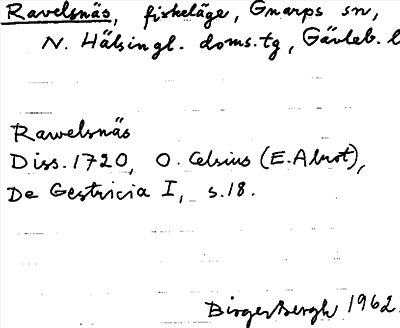 Ravelsnäs, fiskeläge, Gnarps sn,
N. Hälsingl. doms.tg, Gävleb. l
Rawelsnäs
Diss. 1720, O. Celsius (E. Alnot),
De Gestricia I, s. 18.
Birger Bergh 1962.